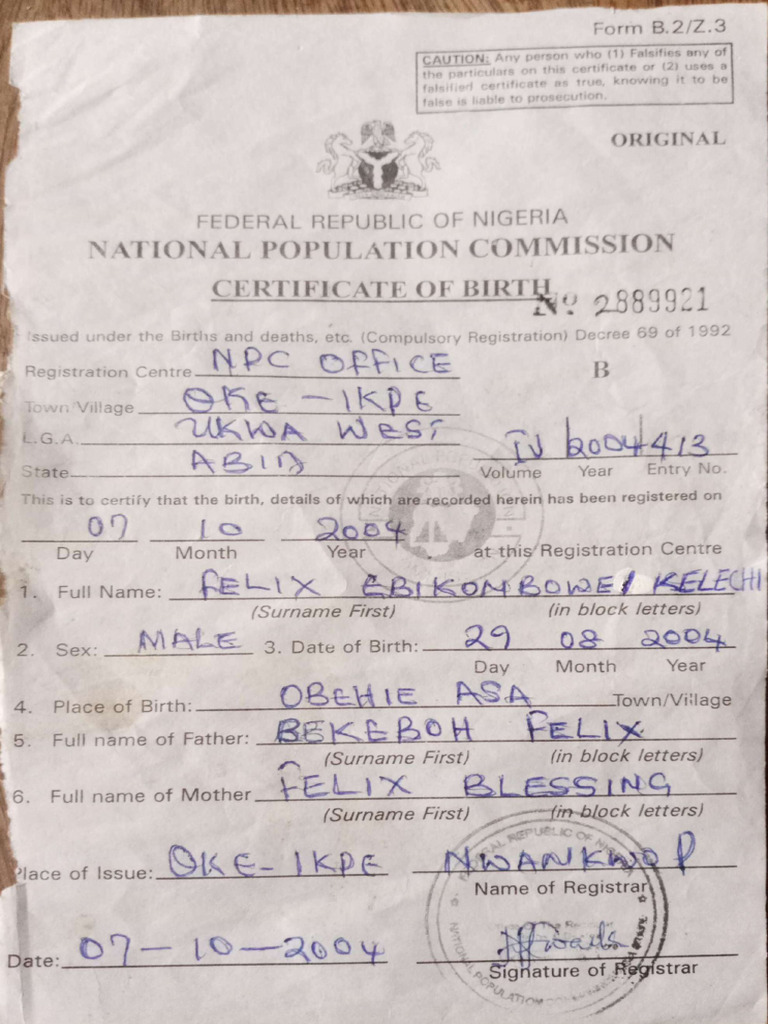 Form B.2/Z.3
CAUTION: Any person who (1) Falsifies any of
the particulars on this certificate or (2) uses a
falsified certificate as true, knowing it to be
false is liable to prosecution.
ORIGINAL
FEDERAL REPUBLIC OF NIGERIA
NATIONAL POPULATION COMMISSION
CERTIFICATE OF BIRTH
Nº 2889921
Issued under the Births and deaths, etc. (Compulsory Registration) Decree 69 of 1992
Registration Centre NPC OFFICE B
Town/Village OKE-IKPE
L.G.A. UKWA WEST
State ABIA
IV 2004 413
Volume Year Entry No.
This is to certify that the birth, details of which are recorded herein has been registered on
07 10 2004
Day Month Year at this Registration Centre
1. Full Name: FELIX EBIKOMBOWEI KELECHI
(Surname First) (in block letters)
2. Sex: MALE 3. Date of Birth: 29 08 2004
Day Month Year
4. Place of Birth: OBEHIE ASA Town/Village
5. Full name of Father: BEKEBOH FELIX
(Surname First) (in block letters)
6. Full name of Mother FELIX BLESSING
(Surname First) (in block letters)
Place of Issue: OKE-IKPE NWANKWO P
Name of Registrar
Date: 07-10-2004
Signature of Registrar